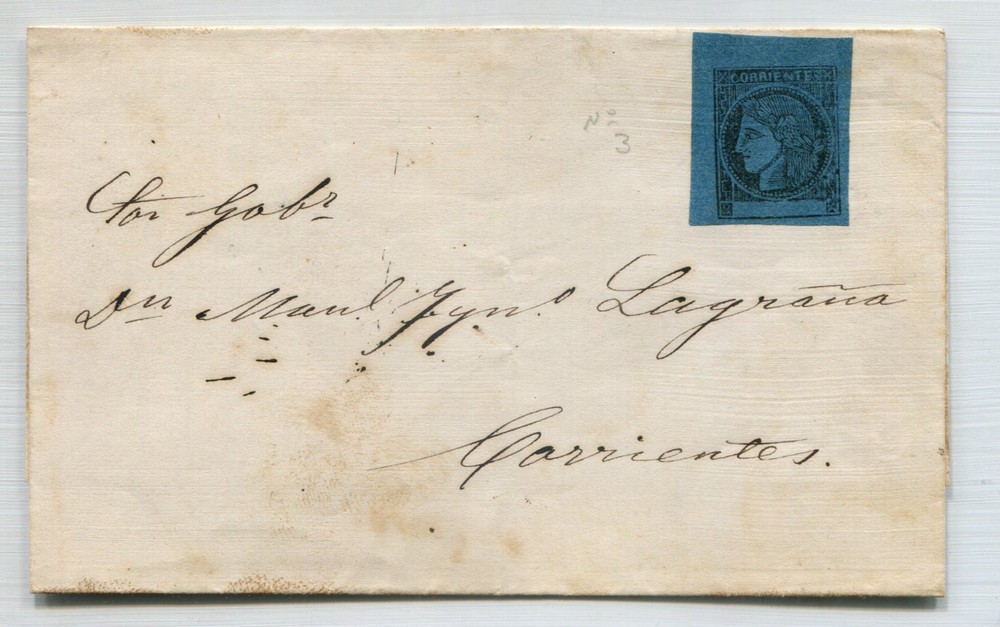 CORRIENTES
Nº
3
Sor Gobr
Dn Manl Ygno Lagraña
Corrientes.